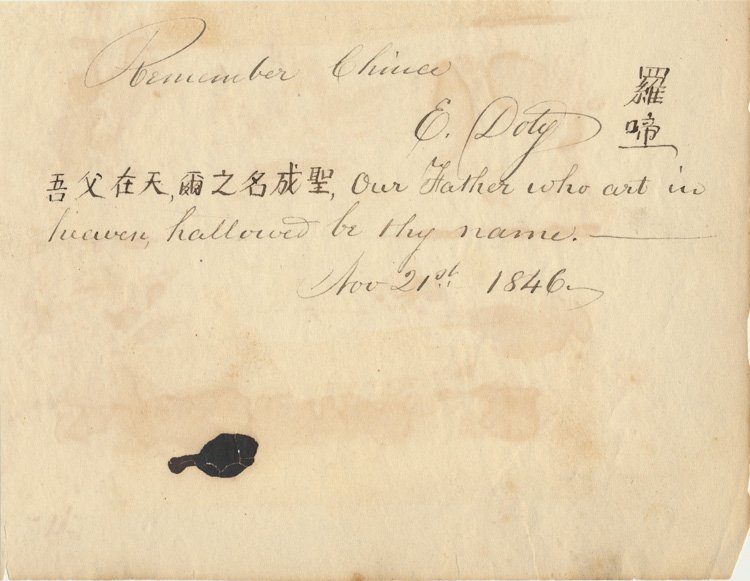 Remember China
E. Doty
羅啼
吾父在天,爾之名成聖, Our Father who art in
heaven, hallowed be thy name.
Nov 21st 1846